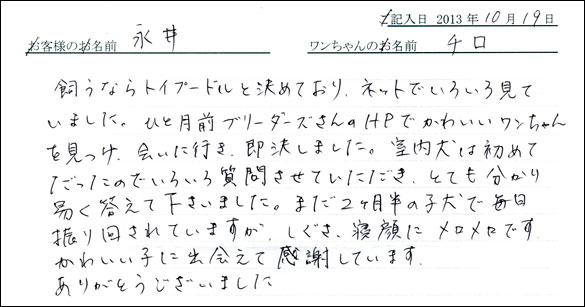 ご記入日 2013年10月19日
お客様のお名前 永井 ワンちゃんのお名前 チロ
飼うならトイプードルと決めており、ネットでいろいろ見て
いました。ひと月前ブリーダーズさんのHPでかわいいワンちゃん
を見つけ、会いに行き、即決しました。室内犬は初めて
だったのでいろいろ質問させていただき、とても分かり
易く答えて下さいました。まだ2ヶ月半の子犬で毎日
振り回されていますが、しぐさ、寝顔にメロメロです
かわいい子に出会えて感謝しています。
ありがとうございました